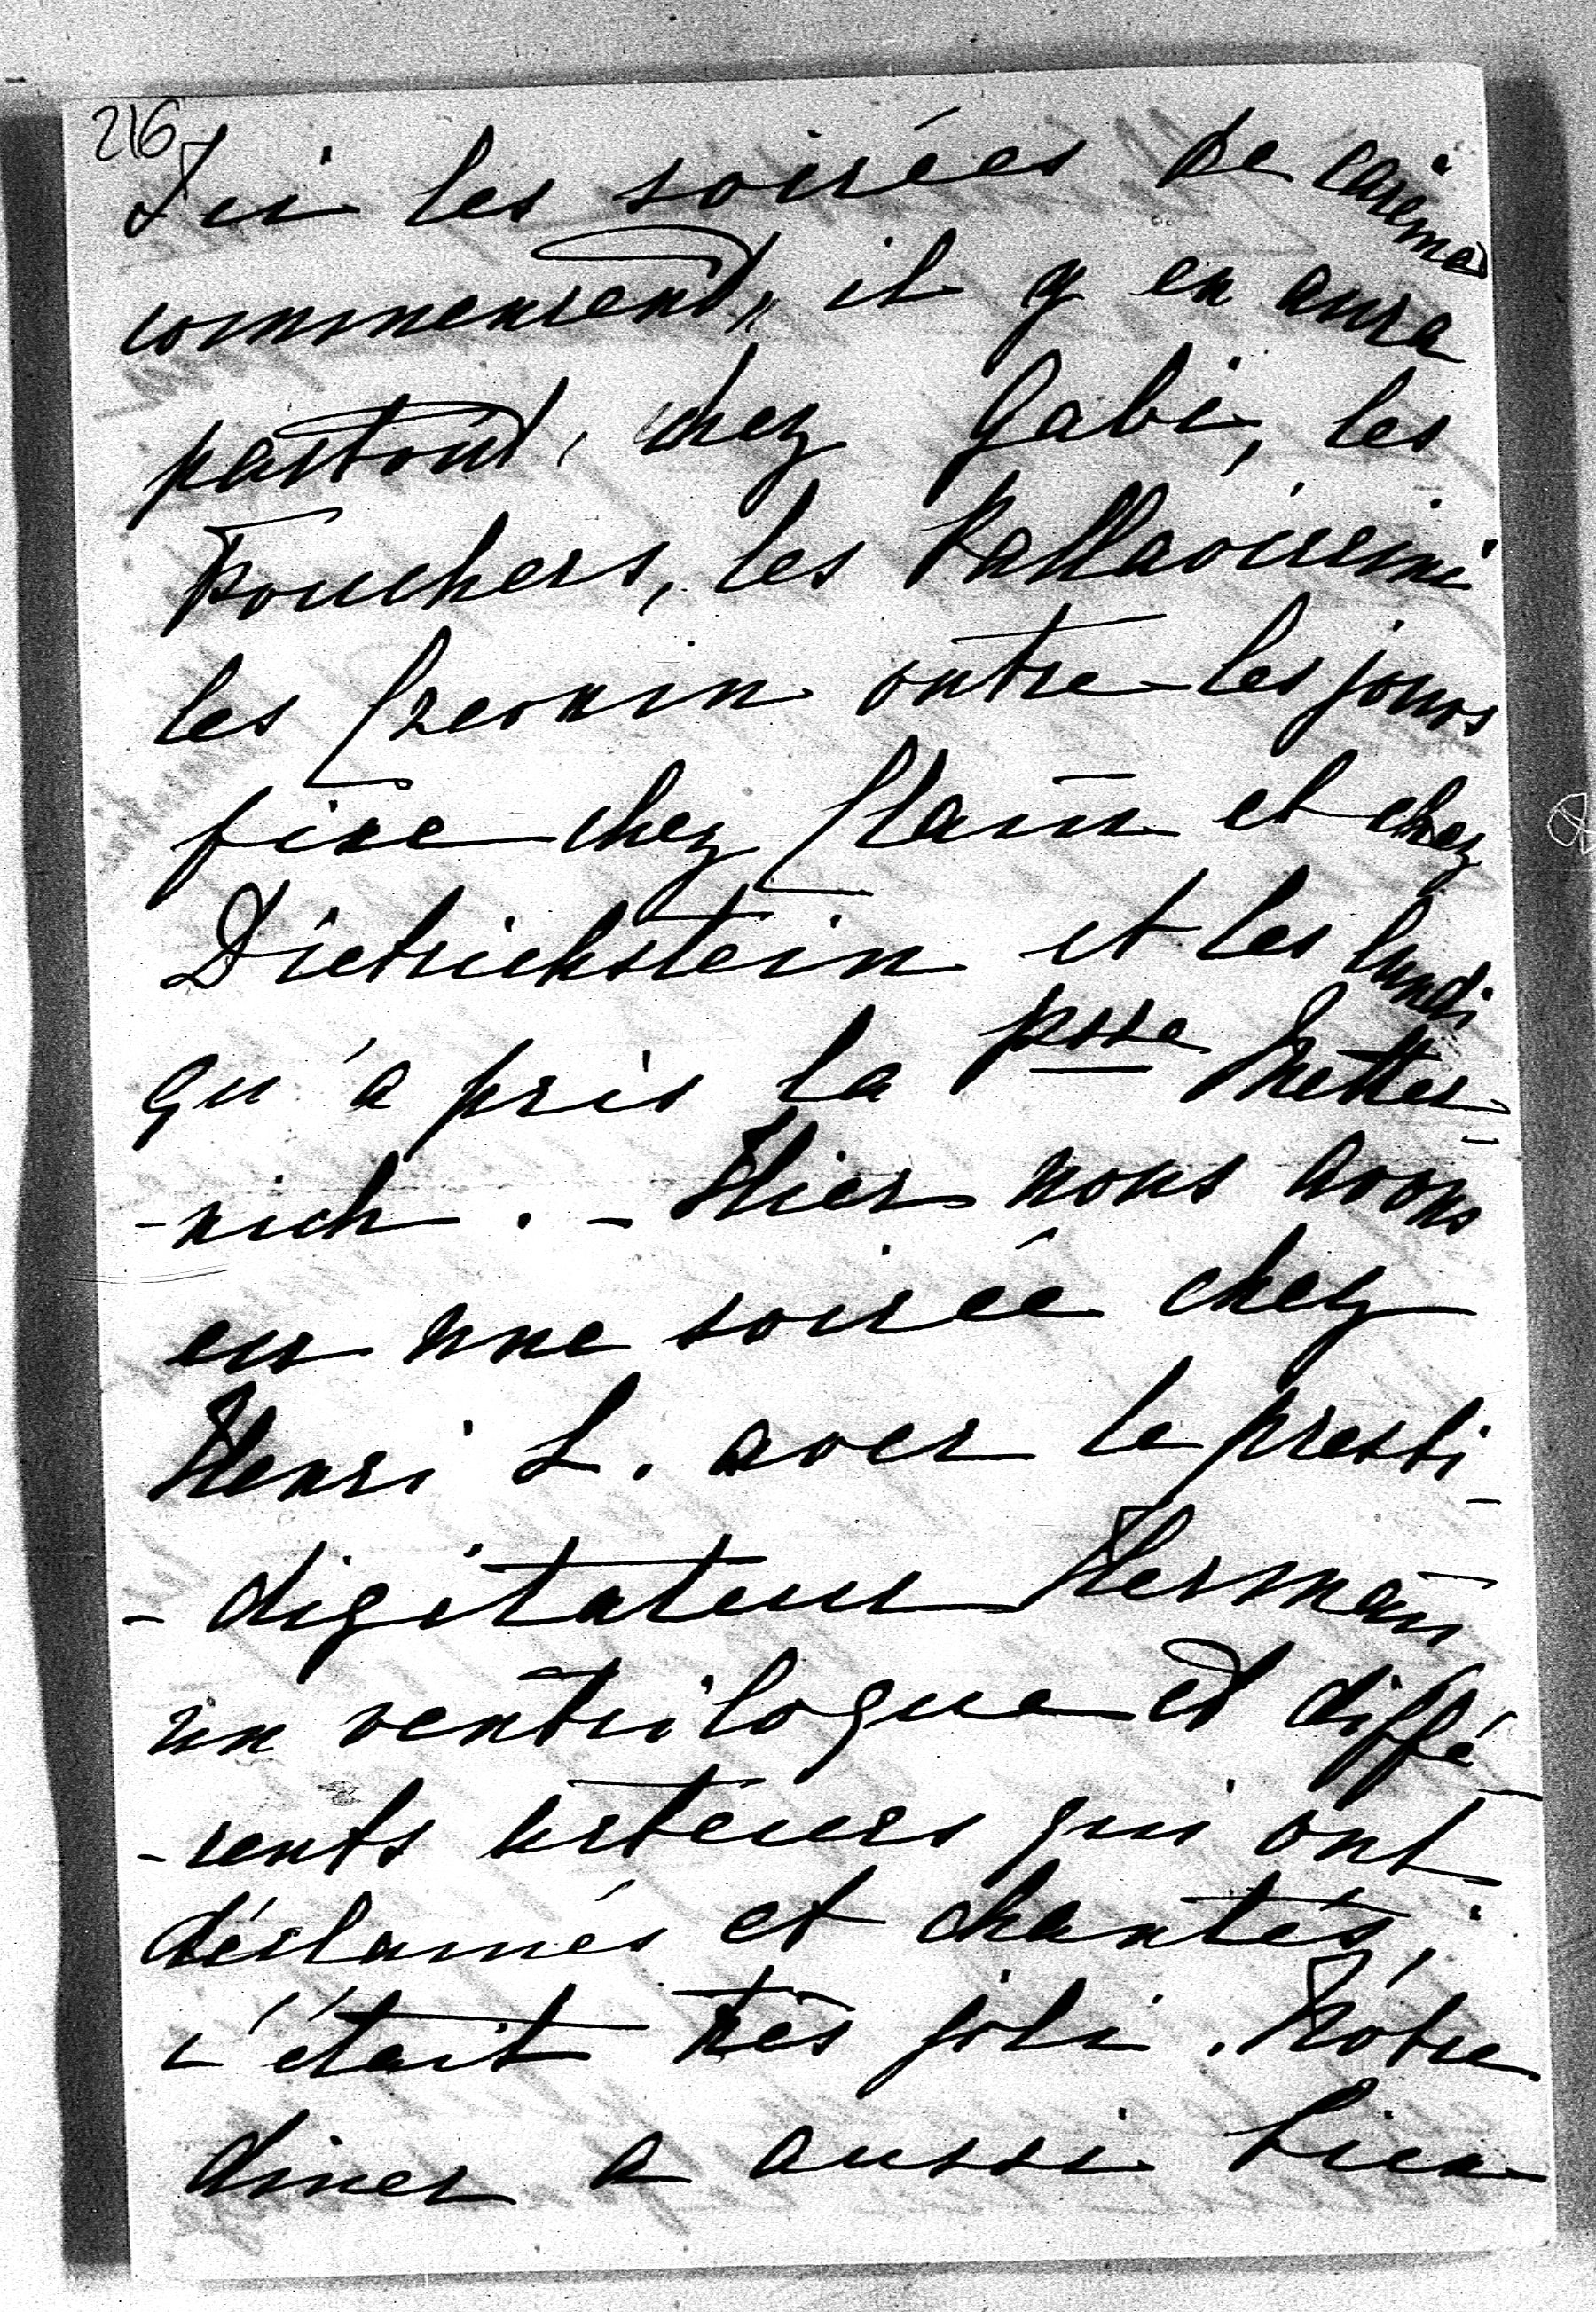 216
Ici les soirées de carême
commencent, il y en aura
partout, chez Gabi, les
Pouchers, les Pallavicini
les Czernin outre les jours
fixe chez Clam̄ et chez
Dietrichstein et les lundi
qu'a pris la psse Metter-
-nich. - Hier nous avons
eu une soirée chez
Henri L. avec le presti-
-digitateur Herman̄
un ventriloque et diffé-
-rents acteurs qui ont
déclamés et chantés;
c'était très joli. Nôtre
diner a aussi bien